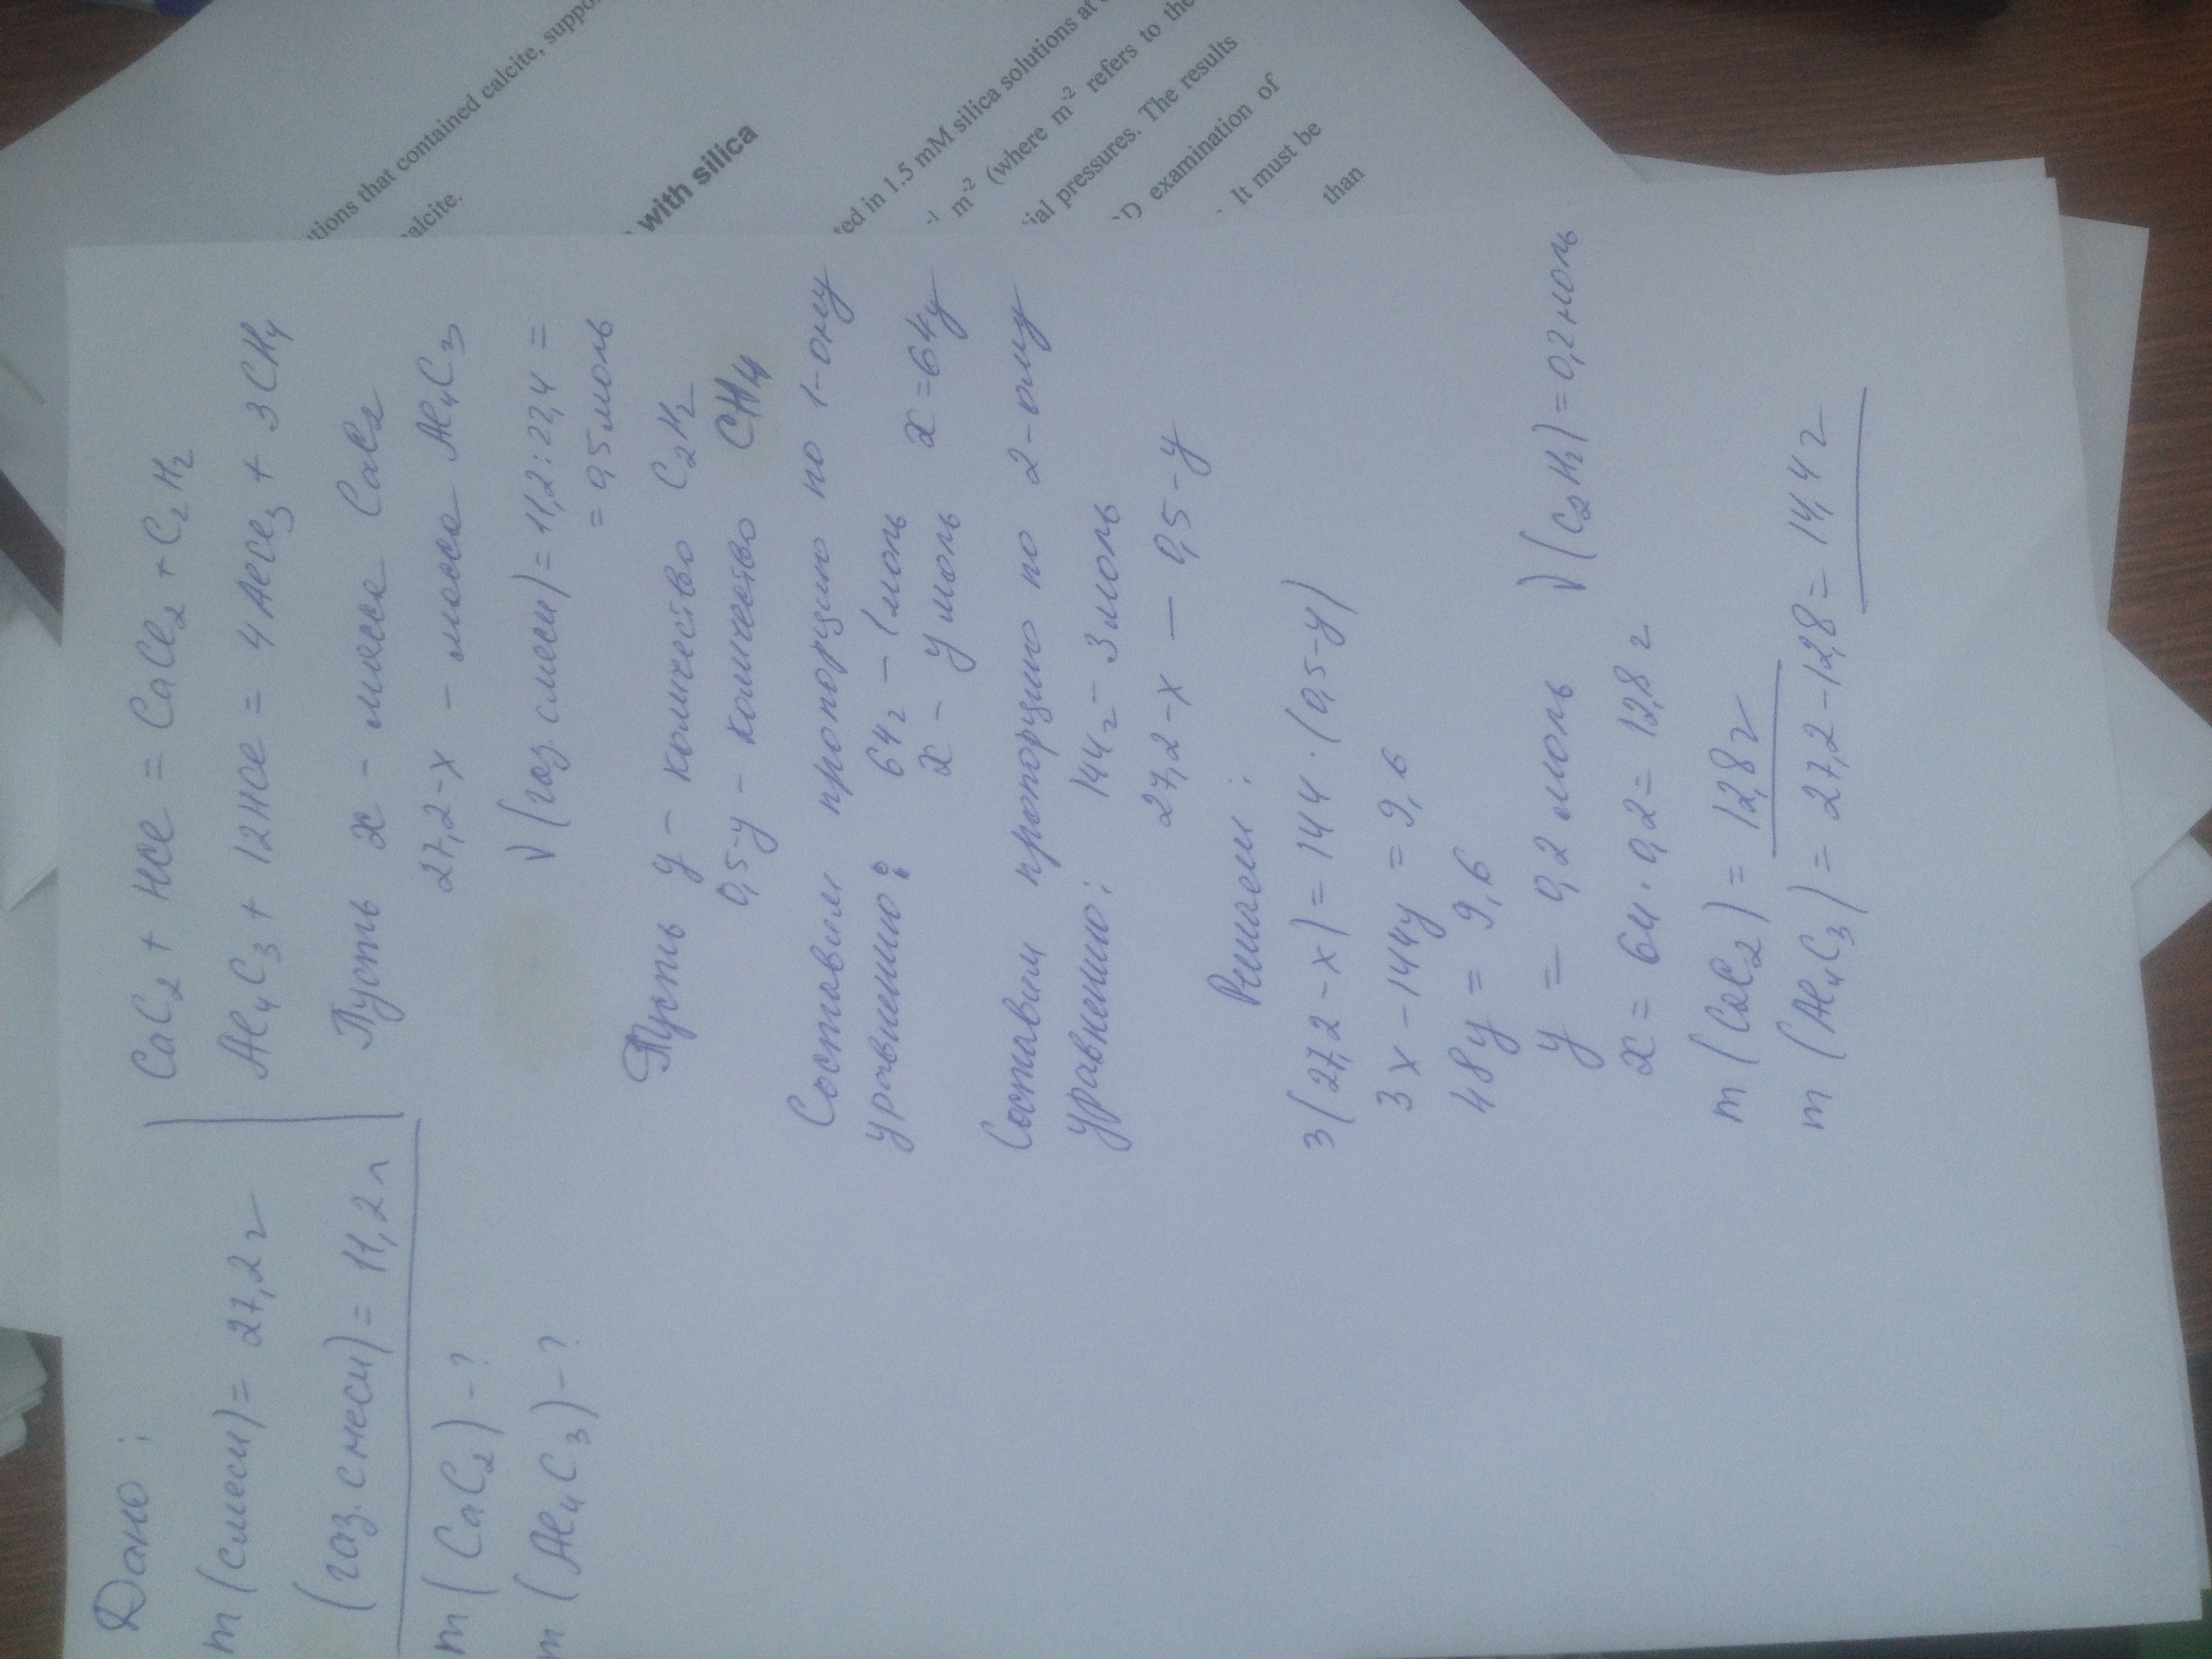 Дано:
m (смеси) = 27,2 г
(газ. смеси) = 11,2 л
m (CaC2) - ?
m (Al4C3) - ?
CaC2 + HCl = CaCl2 + C2H2
Al4C3 + 12HCl = 4AlCl3 + 3CH4
Пусть x - масса CaC2
27,2-x - масса Al4C3
√(газ. смеси) = 11,2 : 22,4 =
= 0,5 моль
Пусть y - количество C2H2
0,5-y - количество CH4
Составим пропорцию по 1-ому
уравнению: 64г - 1 моль
x - y моль x = 64y
Составим пропорцию по 2-ому
уравнению: 144г - 3 моль
27,2-x — 0,5-y
Решаем:
3(27,2-x) = 144·(0,5-y)
3x - 144y = 9,6
48y = 9,6
y = 0,2 моль √(C2H2) = 0,2 моль
x = 64·0,2 = 12,8 г
m (CaC2) = 12,8 г
m (Al4C3) = 27,2-12,8 = 14,4 г
tions that contained calcite,
alcite.
with silica
ted in 1.5 mM silica solutions at
-1 m-2 (where m-2 refers to the
ial pressures. The results
D examination of
It must be
than